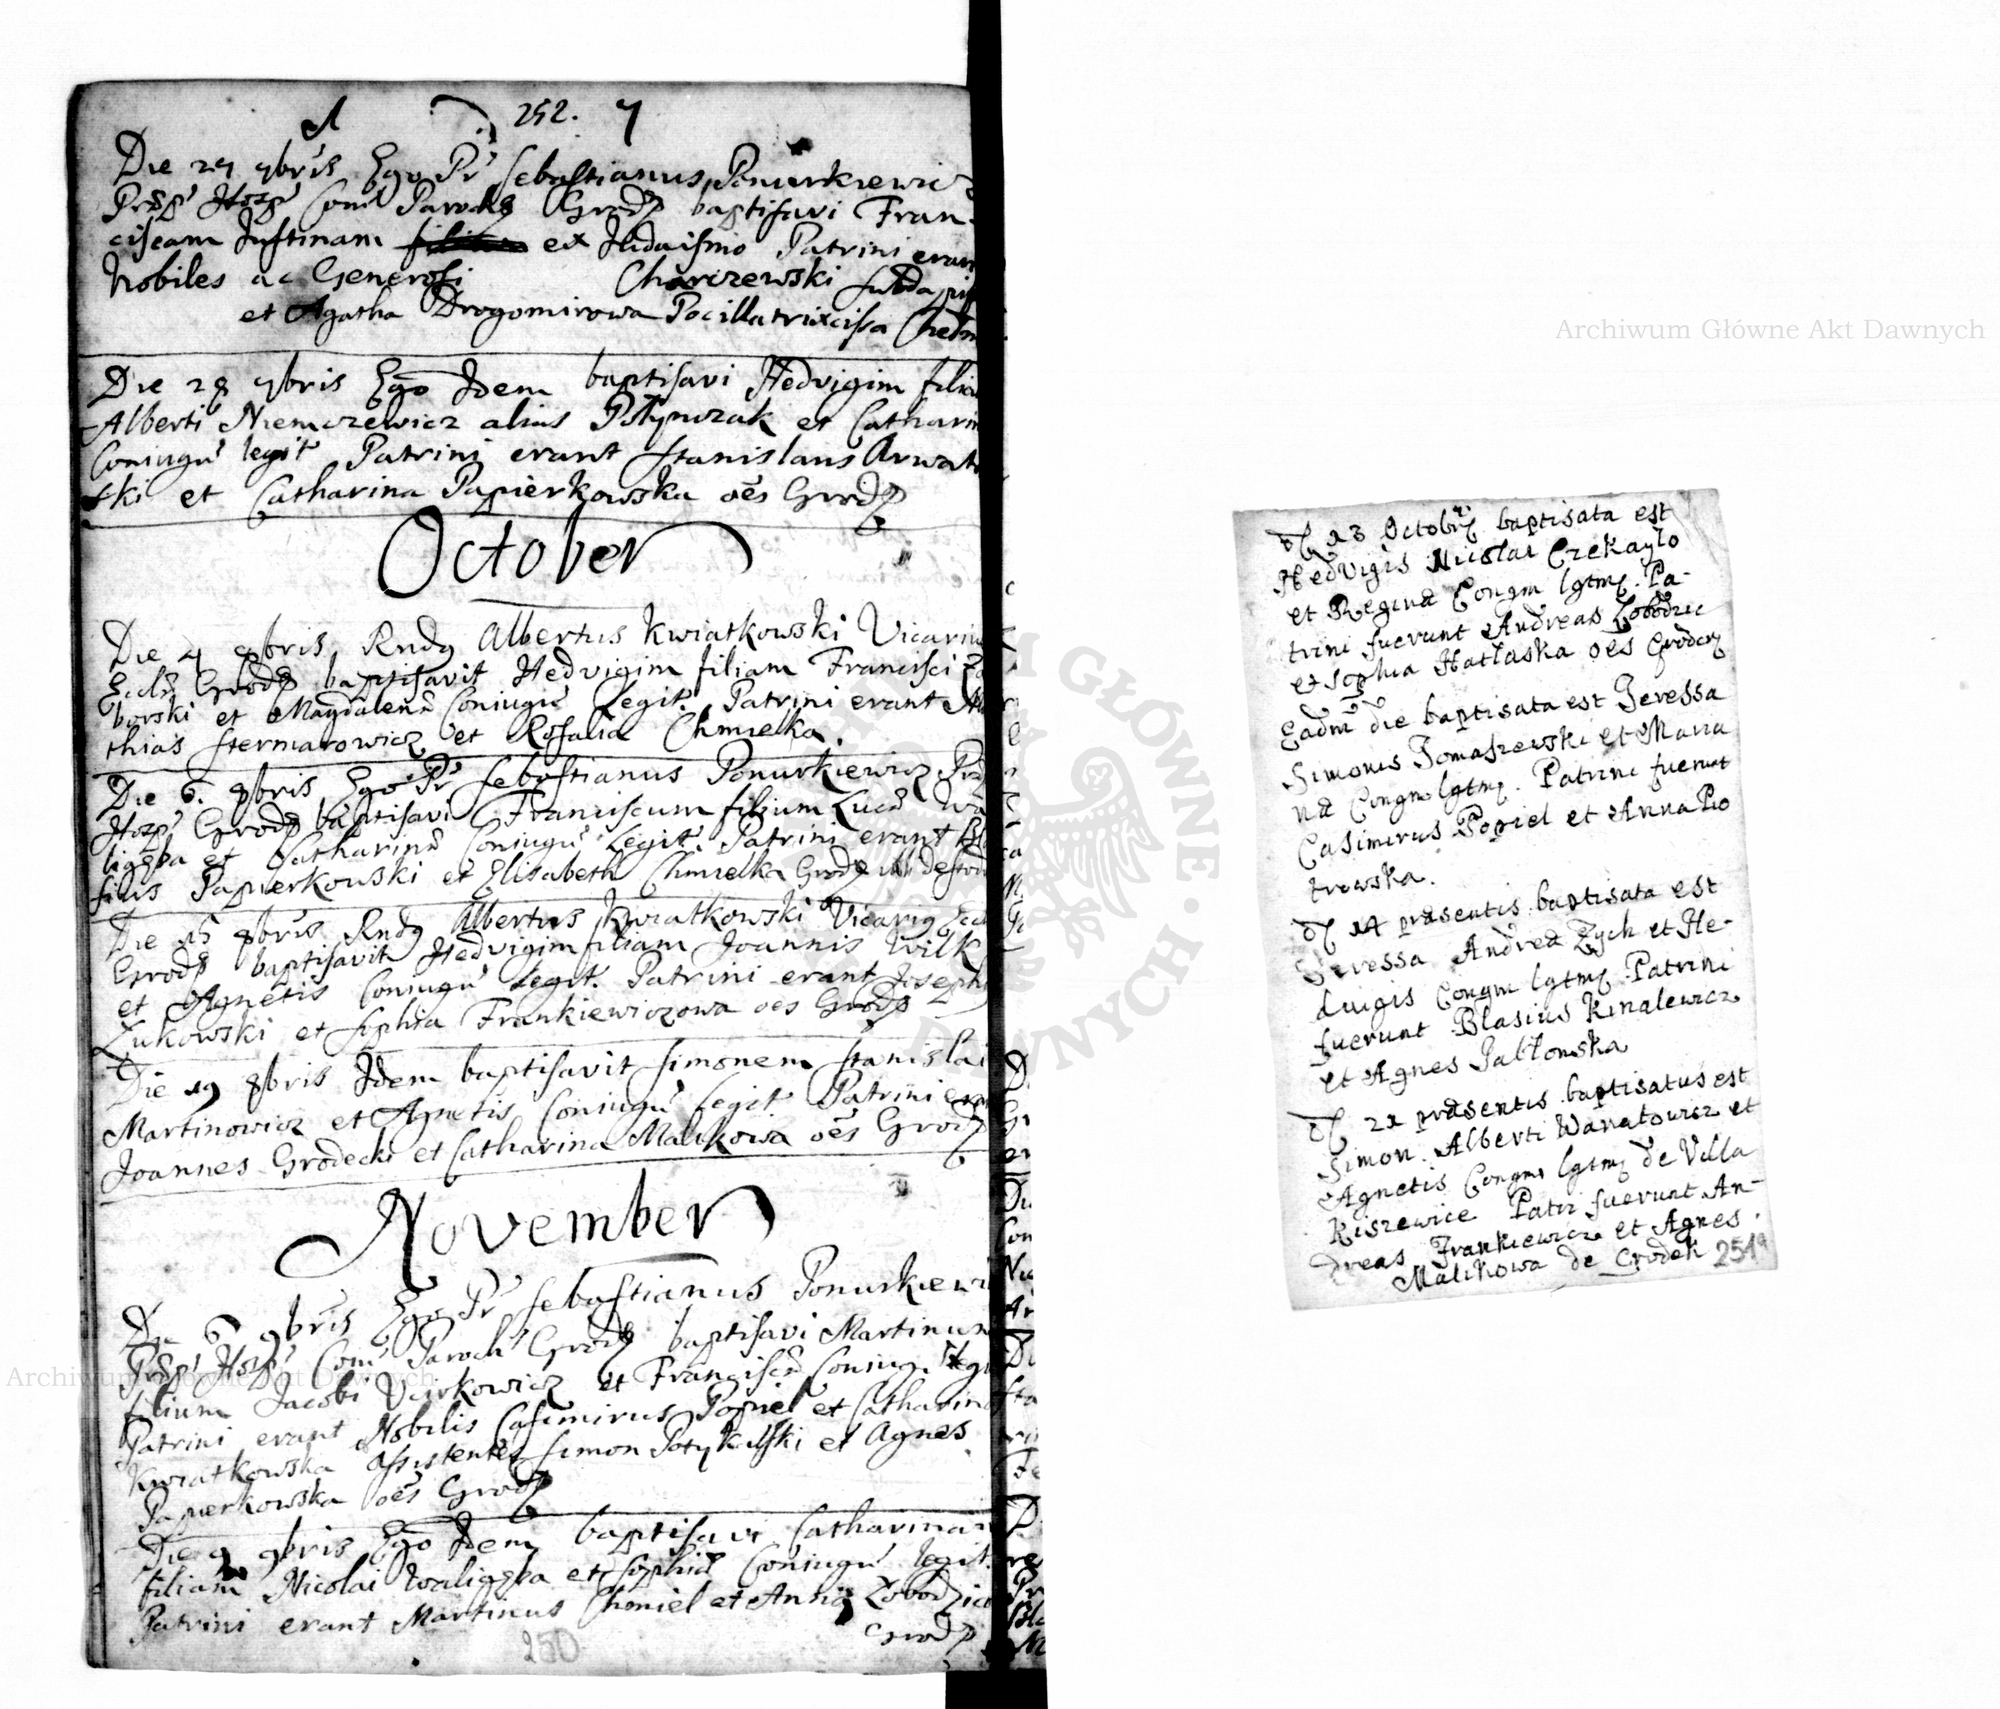 252. 7
Die 27 7bris Ego Pr Sebastianus Ponurkiewicz
Hosp Com Paroch Grod baptisavi Fran-
ciscam Justinam ex Judaismo Patrini eran
Nobiles ac Generosi Charczewski
et Agatha Drogomirowa
Die 28 7bris Ego Idem baptisavi Hedvigim filia
Alberti Niemczewicz alias et Catharin
Coniugu legit Patrini erant Stanislaus
ski et Catharina Papierkowska oes Grod
October
Die 4 8bris Rndq Albertus Kwiatkowski Vicariu
Eccl Grod baptisavit Hedvigim filiam Francisci
borski et Magdalenæ Coniugu Legit. Patrini erant Ma
thias et Rosalia Chmielka.
Die 6. 8bris Ego Pr Sebastianus Ponurkiewicz
Hosp Grod baptisavi Franciscum filium Lucæ Wa
ligęba et Catharinæ Coniugu Legit. Patrini erant
Papierkowski et Elisabeth Chmielka Grod
Die 15 8bris Rndq Albertus Kwiatkowski Vicariq Eccl
Grod baptisavit Hedvigim filiam Joannis Wilk
et Agnetis Coniugu Legit. Patrini erant Joseph
Zukowski et Sophia Frankiewiczowa oes Grod
Die 19 8bris Idem baptisavit Simonem Stanislai
Martinowicz et Agnetis Coniugu Legit Patrini eran
Joannes Grodecki et Catharina Malikowa oes Grod
November
Die 6 9bris Ego Pr Sebastianus Ponurkiewi
Hosp Com Paroch Grod baptisavi Martinum
filium Jacobi et Franciscæ Coniugu legi
Patrini erant Nobilis Casimirus Popiel et Catharina
Kwiatkowska assistentes Simon et Agnes
Papierkowska oes Grod
Die 9 9bris Ego Idem baptisavi Catharinam
filiam Nicolai Waligęba et Sophiæ Coniugu legit.
Patrini erant Martinus Chmiel et Anna Łobodzic
Grod
250
13 Octobr baptisata est
Hedvigis Nicolai Czekayło
et Reginæ Congm lgtm. Pa-
trini fuerunt Andreas Łobodzic
et Sophia Hatłaska oes Grodecz
Eadm die baptisata est Teressa
Simonis Tomaszewski et Maria
næ Congm lgtm. Patrini fuerunt
Casimirus Popiel et Anna Pio
trowska.
14 præsentis baptisata est
Teressa Andreæ Zych et He-
dvigis Congm lgtm Patrini
fuerunt Blasius Kinalewicz
et Agnes Jabłonska
21 præsentis baptisatus est
Simon Alberti Wanatowicz et
Agnetis Congm lgtm de Villa
Kiszewice Patri fuerunt An-
dreas Frankiewicz et Agnes
Malikowa de Grodek 251a
Archiwum Główne Akt Dawnych
Archiwum Główne Akt Dawnych
ARCHIWUM GŁÓWNE AKT DAWNYCH